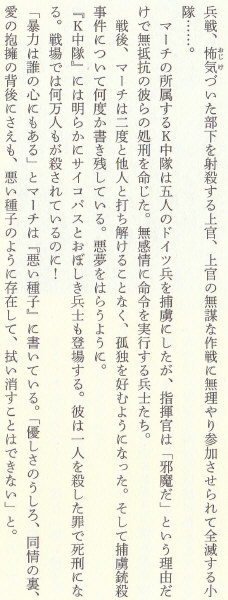 兵戦、怖気づいた部下を射殺する上官、上官の無謀な作戦に無理やり参加させられて全滅する小
隊……。
　マーチの所属するK中隊は五人のドイツ兵を捕虜にしたが、指揮官は「邪魔だ」という理由だ
けで無抵抗の彼らの処刑を命じた。無感情に命令を実行する兵士たち。
　戦後、マーチは二度と他人と打ち解けることなく、孤独を好むようになった。そして捕虜銃殺
事件について何度か書き残している。悪夢をはらうように。
『K中隊』には明らかにサイコパスとおぼしき兵士も登場する。彼は一人を殺した罪で死刑にな
る。戦場では何万人もが殺されているのに！
「暴力は誰の心にもある」とマーチは『悪い種子』に書いている。「優しさのうしろ、同情の裏、
愛の抱擁の背後にさえも、悪い種子のように存在して、拭い消すことはできない」と。
おじけ